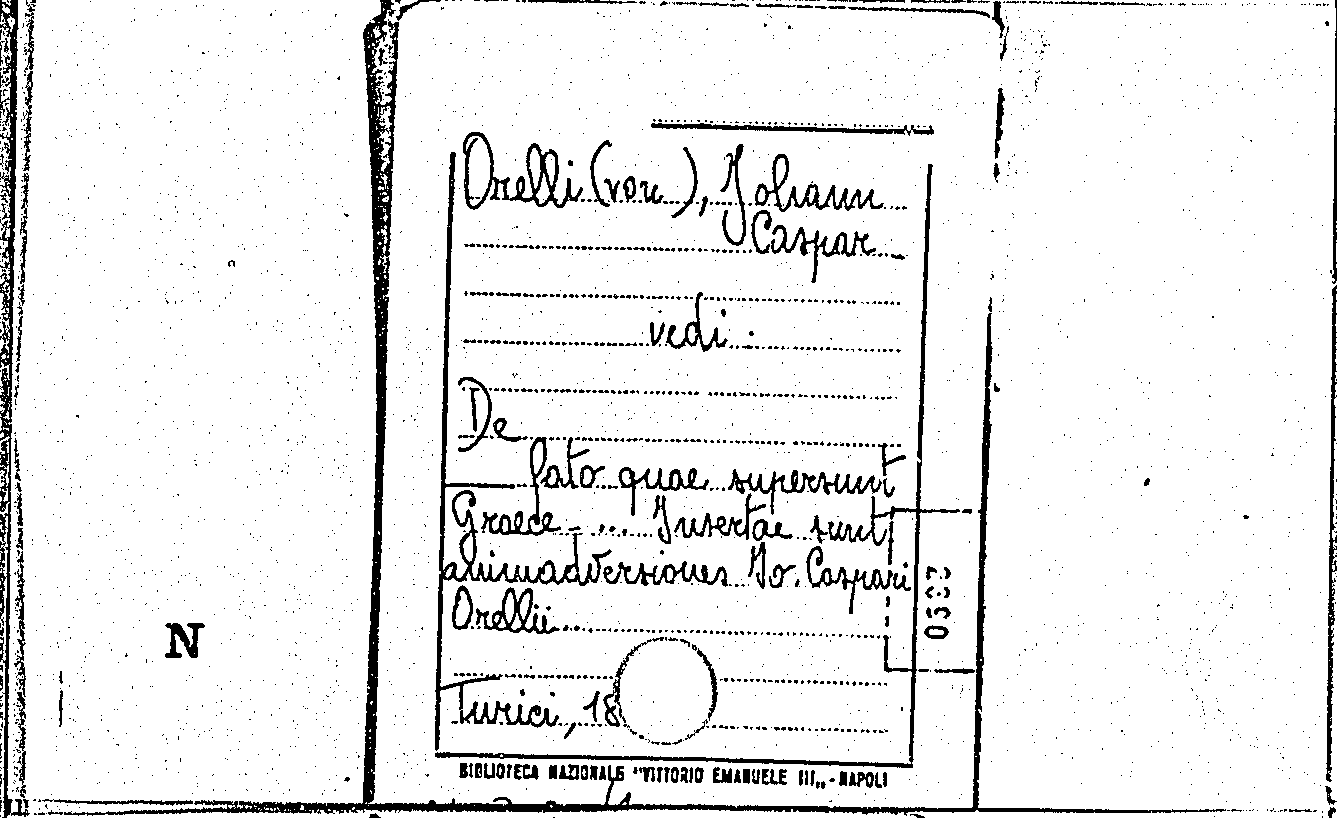 Orelli (von), Johann
Caspar
vedi:
De
fato quae supersunt
Graece - ... Insertae sunt
animadversiones Jo. Caspari
Orellii...
Turici, 18
N
BIBLIOTECA NAZIONALE "VITTORIO EMANUELE III„ - NAPOLI